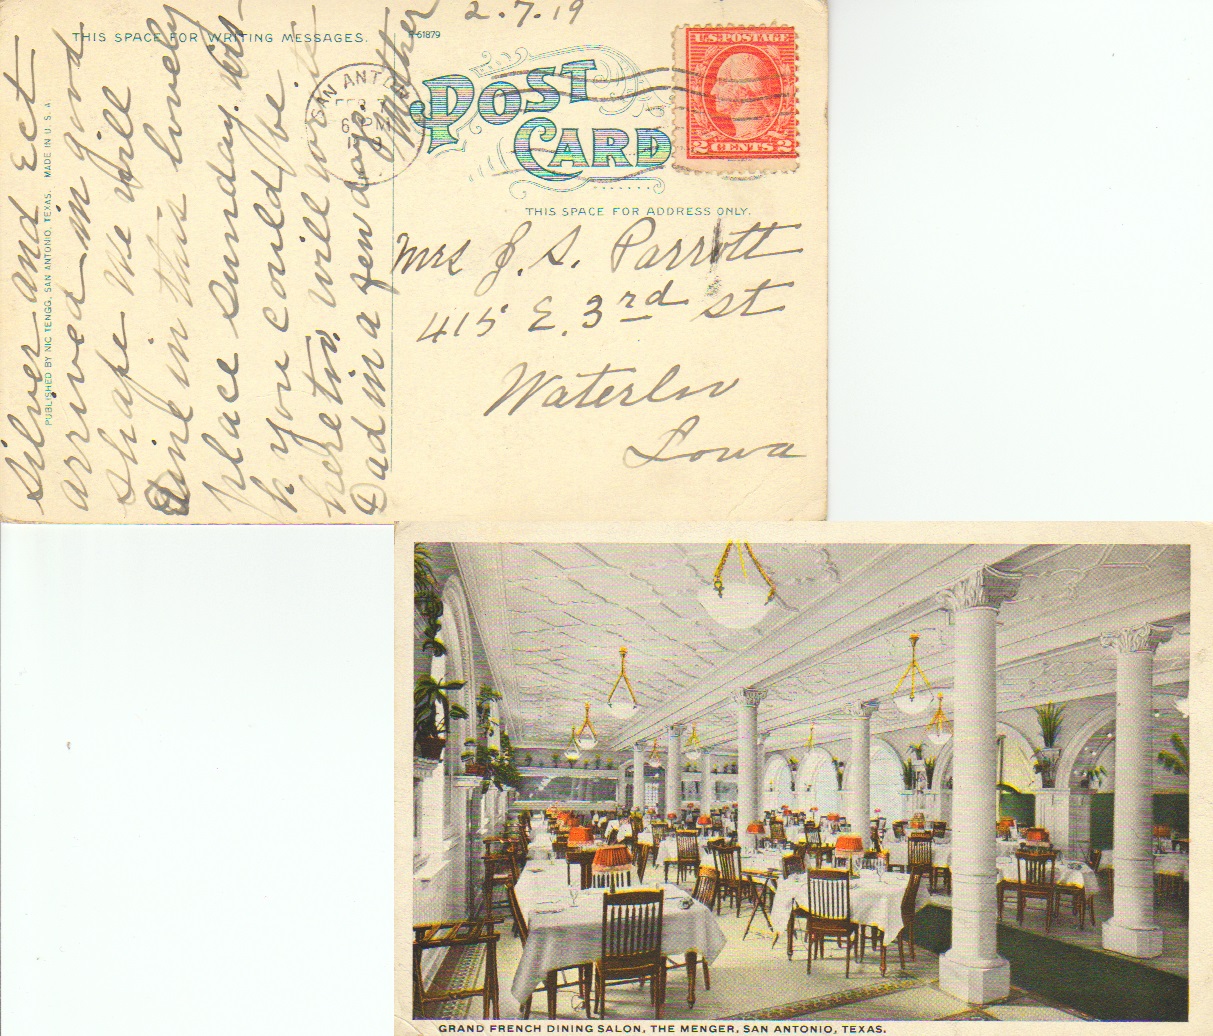 THIS SPACE FOR WRITING MESSAGES.
R-61879
2.7.19
POST
CARD
U.S. POSTAGE
2 CENTS 2
SAN ANTON
FEB 7
6 PM
THIS SPACE FOR ADDRESS ONLY.
Mrs J. S. Parrott
415 E. 3rd st
Waterloo
Iowa
PUBLISHED BY NIC TENGG, SAN ANTONIO, TEXAS. MADE IN U.S.A
Silver and Ect
arrived in good
shape we will
Dine in this lovely
place Sunday.
you could be
here too. will
Dad in a few days.
Mother
GRAND FRENCH DINING SALON, THE MENGER, SAN ANTONIO, TEXAS.